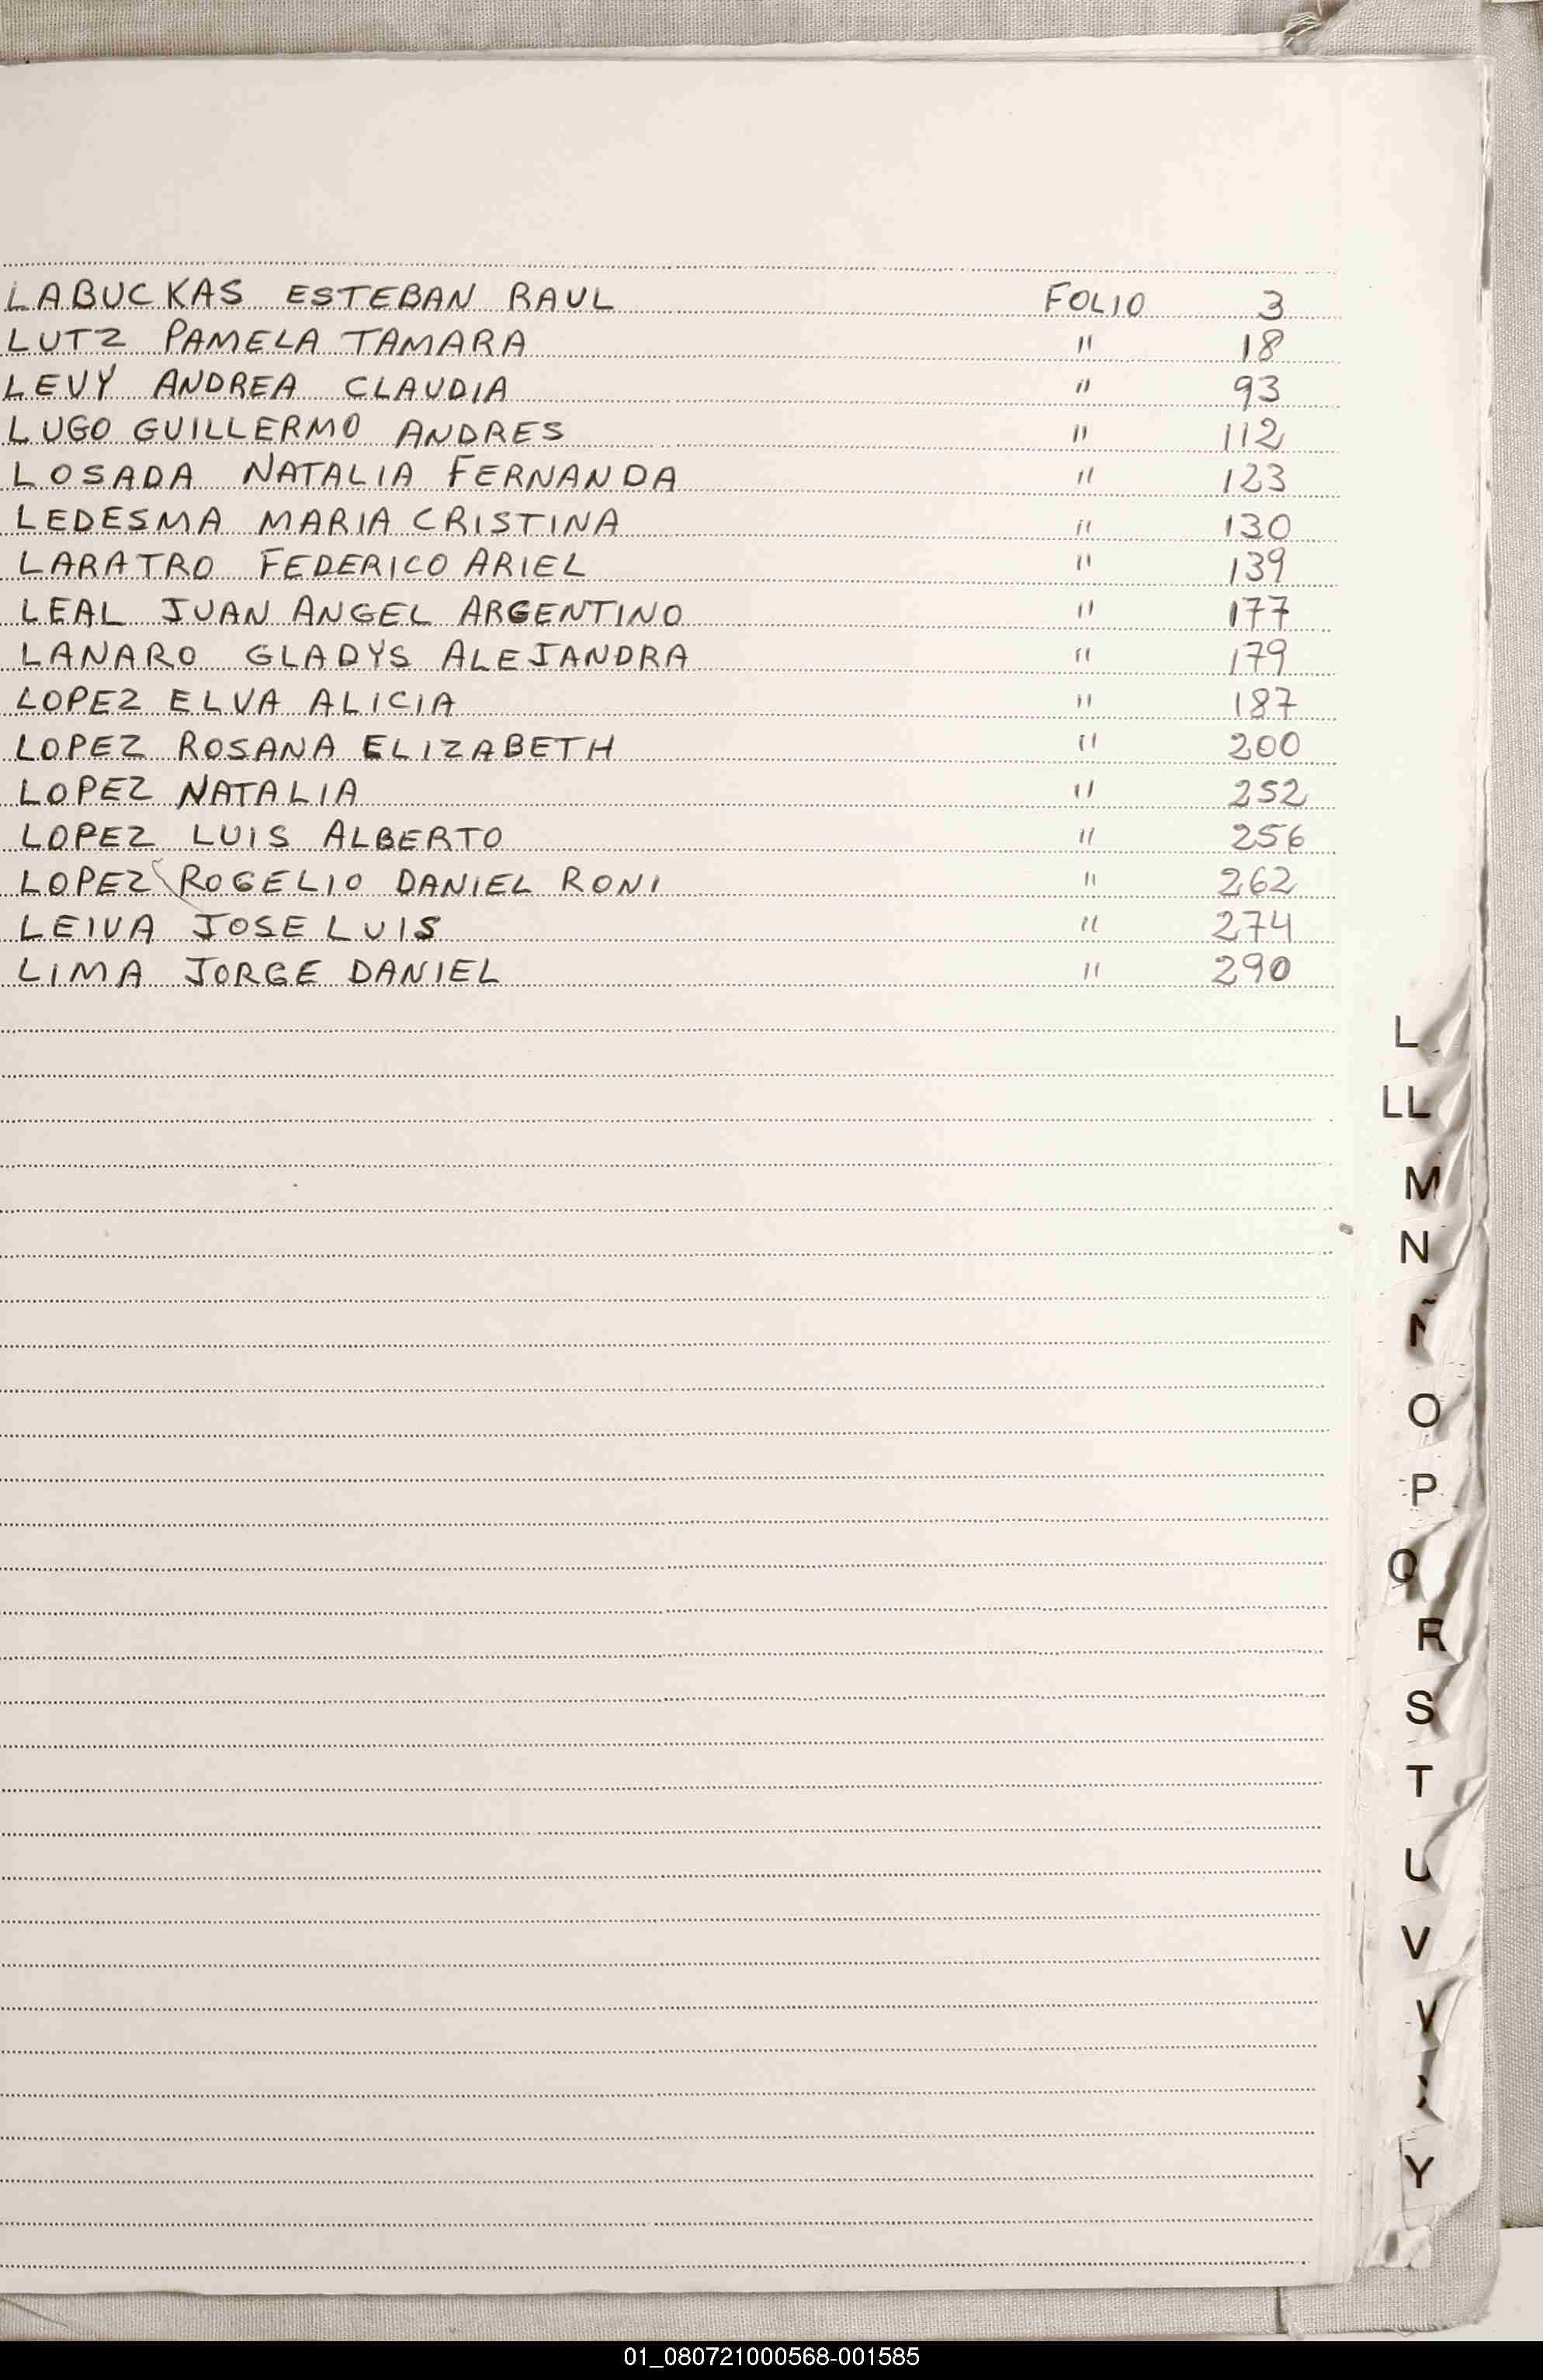 LABUCKAS ESTEBAN RAUL FOLIO 3
LUTZ PAMELA TAMARA " 18
LEVY ANDREA CLAUDIA " 93
LUGO GUILLERMO ANDRES " 112
LOSADA NATALIA FERNANDA " 123
LEDESMA MARIA CRISTINA " 130
LARATRO FEDERICO ARIEL " 139
LEAL JUAN ANGEL ARGENTINO " 177
LANARO GLADYS ALEJANDRA " 179
LOPEZ ELVA ALICIA " 187
LOPEZ ROSANA ELIZABETH " 200
LOPEZ NATALIA " 252
LOPEZ LUIS ALBERTO " 256
LOPEZ ROGELIO DANIEL RONI " 262
LEIVA JOSE LUIS " 274
LIMA JORGE DANIEL " 290
L
LL
M
N
Ñ
O
P
Q
R
S
T
U
V
Y
01_080721000568-001585